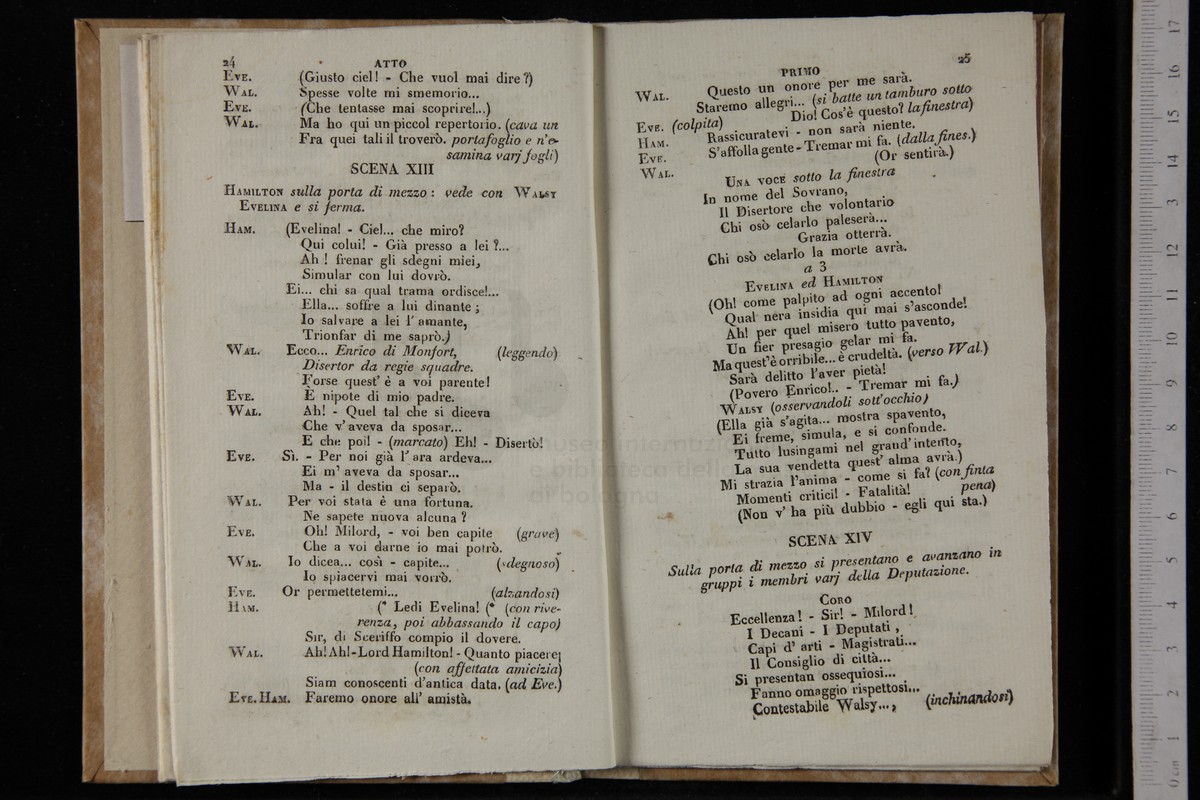 24 ATTO
EVE. (Giusto ciel! - Che vuol mai dire?)
WAL. Spesse volte mi smemorio...
EVE. (Che tentasse mai scoprire!...)
WAL. Ma ho qui un piccol repertorio. (cava un
Fra quei tali il troverò. portafoglio e n'e-
samina varj fogli)
SCENA XIII
HAMILTON sulla porta di mezzo: vede con WALSY
EVELINA e si ferma.
HAM. (Evelina! - Ciel... che miro?
Qui colui! - Già presso a lei?...
Ah! frenar gli sdegni miei,
Simular con lui dovrò.
Ei... chi sa qual trama ordisce!...
Ella... soffre a lui dinante;
Io salvare a lei l'amante,
Trionfar di me saprò.)
WAL. Ecco... Enrico di Monfort, (leggendo)
Disertor da regie squadre.
Forse quest' è a voi parente!
EVE. È nipote di mio padre.
WAL. Ah! - Quel tal che si diceva
Che v'aveva da sposar...
E che poi! - (marcato) Eh! - Disertò!
EVE. Sì. - Per noi già l'ara ardeva...
Ei m'aveva da sposar...
Ma - il destin ci separò.
WAL. Per voi stata è una fortuna.
Ne sapete nuova alcuna?
EVE. Oh! Milord, - voi ben capite (grave)
Che a voi darne io mai potrò.
WAL. Io dicea... così - capite... (sdegnoso)
Io spiacervi mai vorrò.
EVE. Or permettetemi... (alzandosi)
HAM. (* Ledi Evelina! (* (con rive-
renza, poi abbassando il capo)
Sir, di Sceriffo compio il dovere.
WAL. Ah! Ah! - Lord Hamilton! - Quanto piacere;
(con affettata amicizia)
Siam conoscenti d'antica data. (ad Eve.)
EVE. HAM. Faremo onore all' amistà.
PRIMO 25
WAL. Questo un onore per me sarà.
Staremo allegri... (si batte un tamburo sotto
EVE. (colpita) Dio! Cos'è questo? la finestra)
HAM. Rassicuratevi - non sarà niente.
EVE. S'affolla gente - Tremar mi fa. (dalla fines.)
WAL. (Or sentirà.)
UNA VOCE sotto la finestra
In nome del Sovrano,
Il Disertore che volontario
Chi osò celarlo paleserà...
Grazia otterrà.
Chi osò celarlo la morte avrà.
a 3
EVELINA ed HAMILTON
(Oh! come palpito ad ogni accento!
Qual nera insidia qui mai s'asconde!
Ah! per quel misero tutto pavento,
Un fier presagio gelar mi fa.
Ma quest'è orribile... è crudeltà. (verso Wal.)
Sarà delitto l'aver pietà!
(Povero Enrico!.. - Tremar mi fa.)
WALSY (osservandoli sott'occhio)
(Ella già s'agita... mostra spavento,
Ei freme, simula, e si confonde.
Tutto lusingami nel grand'intento,
La sua vendetta quest' alma avrà.)
Mi strazia l'anima - come si fa? (con finta
Momenti critici! - Fatalità! pena)
(Non v' ha più dubbio - egli qui sta.)
SCENA XIV
Sulla porta di mezzo si presentano e avanzano in
gruppi i membri varj della Deputazione.
CORO
Eccellenza! - Sir! - Milord!
I Decani - I Deputati,
Capi d' arti - Magistrati...
Il Consiglio di città...
Si presentan ossequiosi...
Fanno omaggio rispettosi...
Contestabile Walsy..., (inchinandosi)